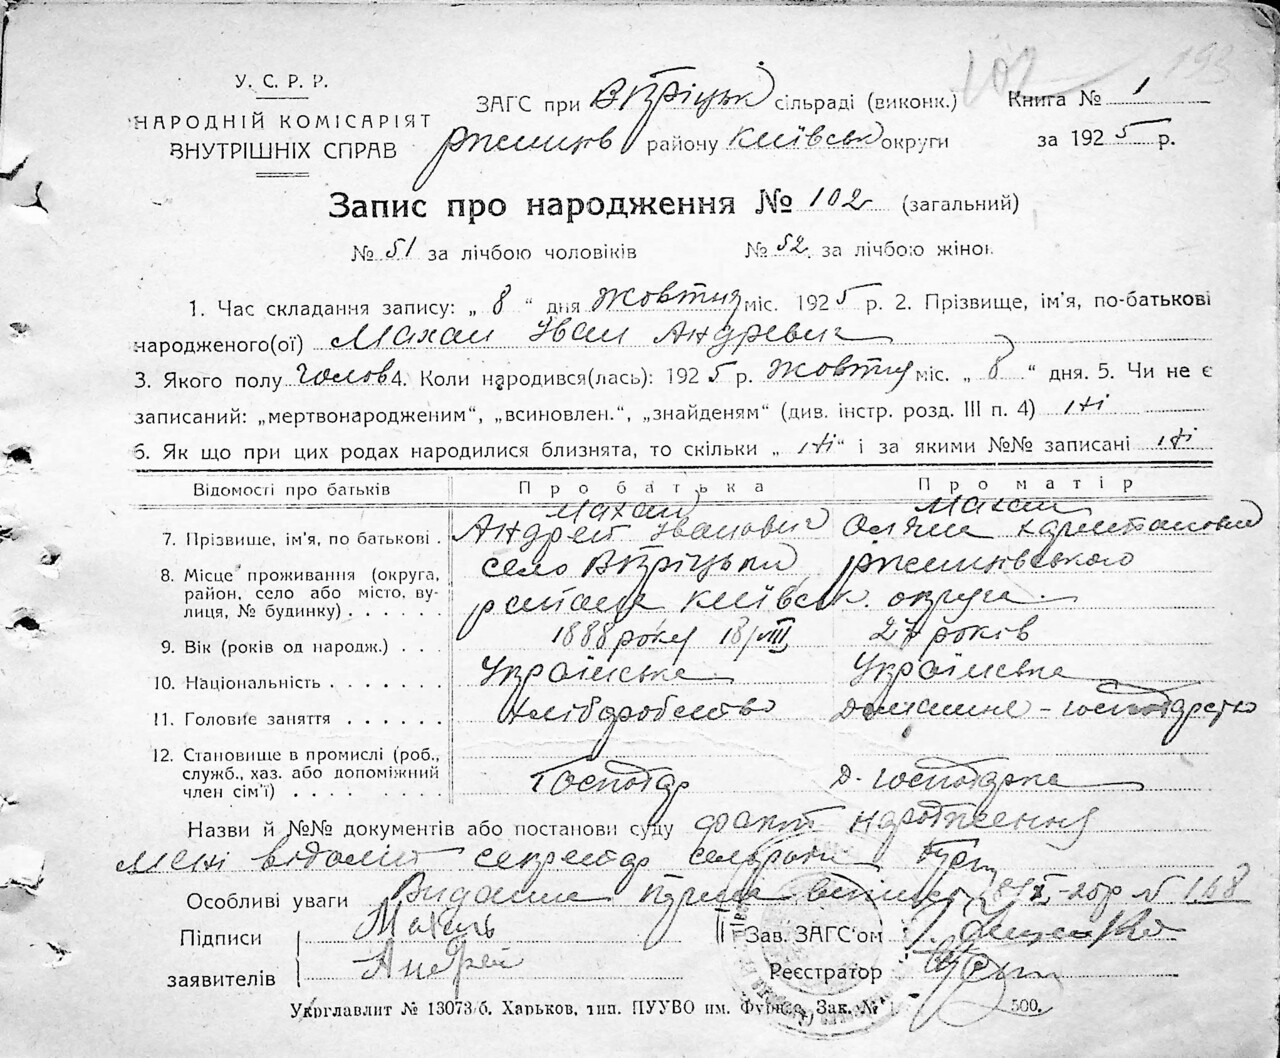 102 193
У. С. Р. Р.
НАРОДНІЙ КОМІСАРІЯТ
ВНУТРІШНІХ СПРАВ
ЗАГС при сільраді (виконк.) Книга № 1
районy Київськ округи за 1925 р.
Запис про народження № 102 (загальний)
№ 51 за лічбою чоловіків № 52 за лічбою жінок
1. Час складання запису: „ 8 “ дня жовтня міс. 1925 р. 2. Прізвище, ім'я, по-батькові
народженого(ої) Махан Іван Андревич
3. Якого полу чолов 4. Коли народився(лась): 1925 р. жовтня міс. „ 8 “ дня. 5. Чи не є
записаний: „мертвонародженим“, „всиновлен.“, „знайденям“ (див. інстр. розд. III п. 4) ні
6. Як що при цих родах народилися близнята, то скільки „ ні “ і за якими №№ записані ні
Відомості про батьків Про батька Про матір
Махан Махан
7. Прізвище, ім'я, по батькові . Андрей Іванович
8. Місце проживання (округа, район, село або місто, вулиця, № будинку) . . . . . село
району Київськ. округа.
9. Вік (років од народж.) . . . 1888 року 18/VIII 27 років
10. Національність . . . . . . . Українська Українська
11. Головне заняття . . . . . . Хліборобство Домашнє-господарство
12. Становище в промислі (роб., служб., хаз. або допоміжний член сім'ї) . . . . . . . . . Господар Д. господарка
Назви й №№ документів або постанови суду факт народження
мені відомий секретар сельради
Особливі уваги Видана № 168
Підписи Махань Зав. ЗАГС'ом
заявителів Андрей Реєстратор
Укрглавлит № 13073/б. Харьков, тип. ПУУВО им. Фрунзе. Зак. № 500.